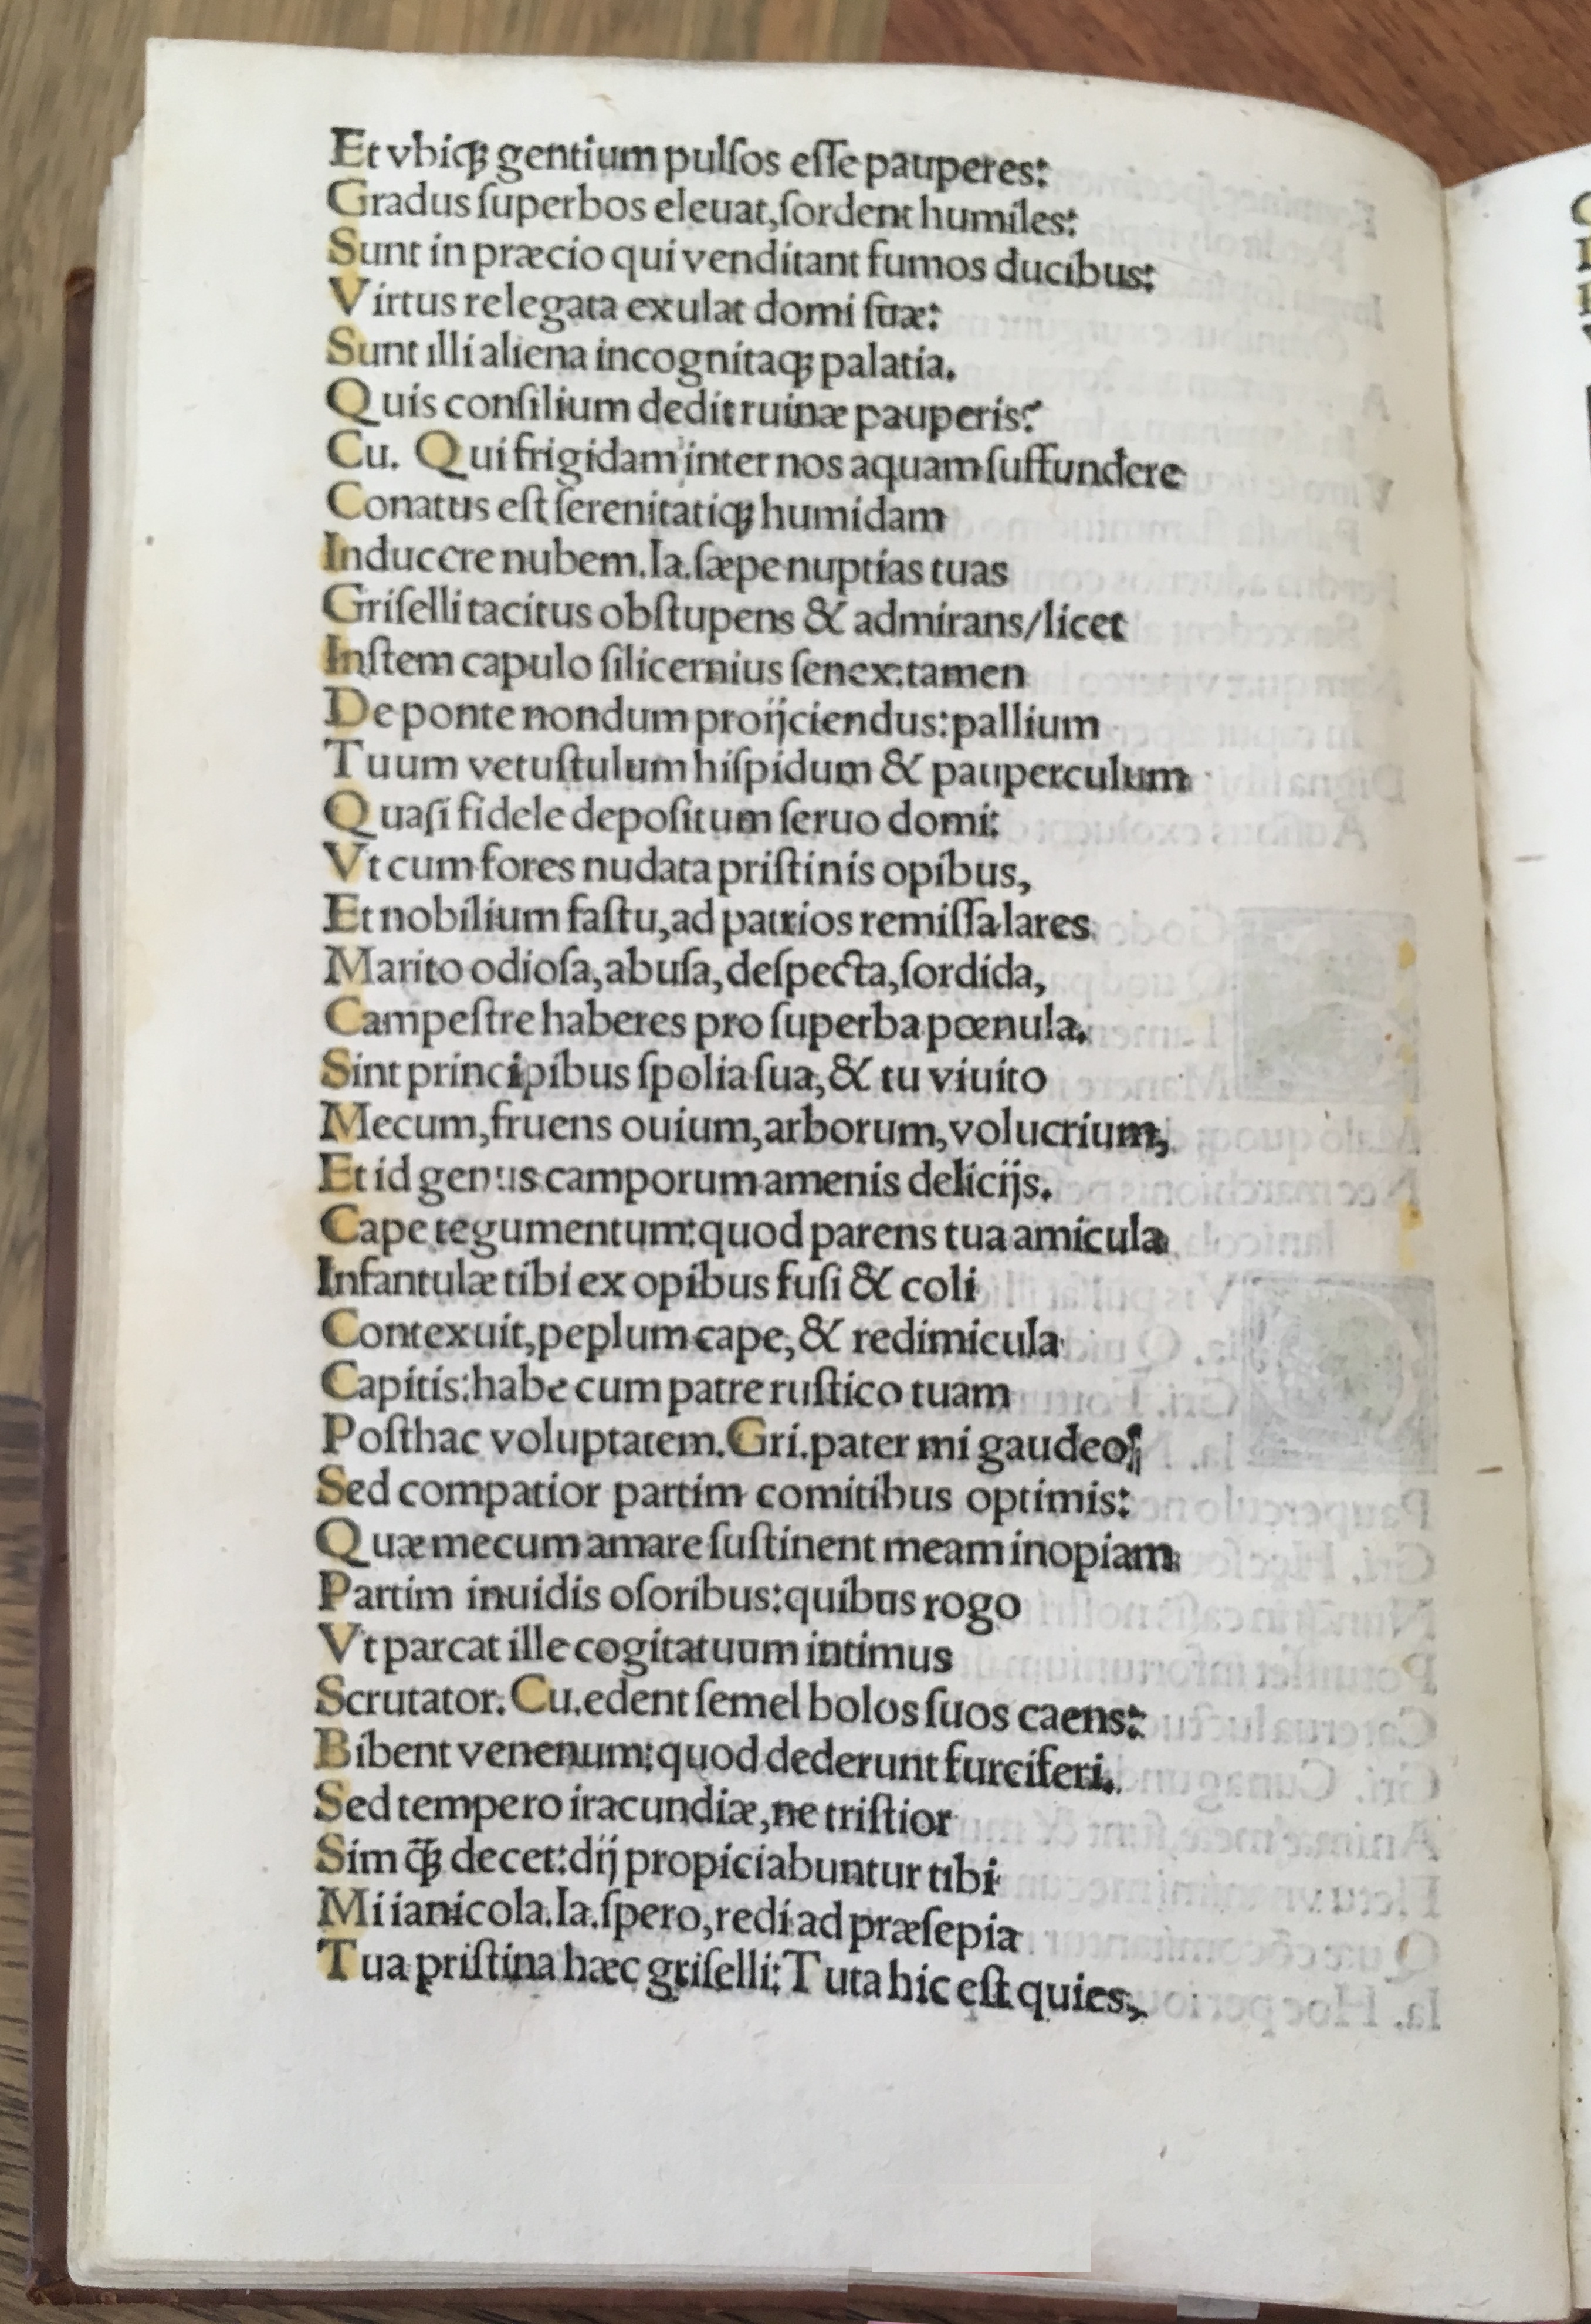 Et vbiqꝫ gentium pulſos eſſe pauperes:
Gradus ſuperbos eleuat,ſordent humiles:
Sunt in præcio qui venditant fumos ducibus:
Virtus relegata exulat domi ſuæ:
Sunt illi aliena incognitaqꝫ palatia.
Quis conſilium dedit ruinæ pauperis?
Cu. Qui frigidam inter nos aquam ſuffundere
Conatus eſt ſerenitatiqꝫ humidam
Inducere nubem.Ia.ſæpe nuptias tuas
Griſelli tacitus obſtupens & admirans/licet
Inſtem capulo ſilicernius ſenex:tamen
De ponte nondum proijciendus:pallium
Tuum vetuſtulum hiſpidum & pauperculum
Quaſi fidele depoſitum ſeruo domi:
Vt cum fores nudata priſtinis opibus,
Et nobilium faſtu,ad patrios remiſſa lares
Marito odioſa,abuſa,deſpecta,ſordida,
Campeſtre haberes pro ſuperba pœnula.
Sint principibus ſpolia ſua,& tu viuito
Mecum,fruens ouium,arborum,volucrium,
Et id genus camporum amenis delicijs.
Cape tegumentum:quod parens tua amicula
Infantulæ tibi ex opibus fuſi & coli
Contexuit,peplum cape,& redimicula
Capitis:habe cum patre ruſtico tuam
Poſthac voluptatem.Gri.pater mi gaudeo:
Sed compatior partim comitibus optimis:
Quæ mecum amare ſuſtinent meam inopiam
Partim inuidis oſoribus:quibus rogo
Vt parcat ille cogitatuum intimus
Scrutator.Cu.edent ſemel bolos ſuos caens:
Bibent venenum:quod dederunt furciferi.
Sed tempero iracundiæ,ne triſtior
Sim q̄ꝫ decet:dij propiciabuntur tibi
Mi ianicola.Ia.ſpero,redi ad præſepia
Tua priſtina hæc griſelli:Tuta hic eſt quies,